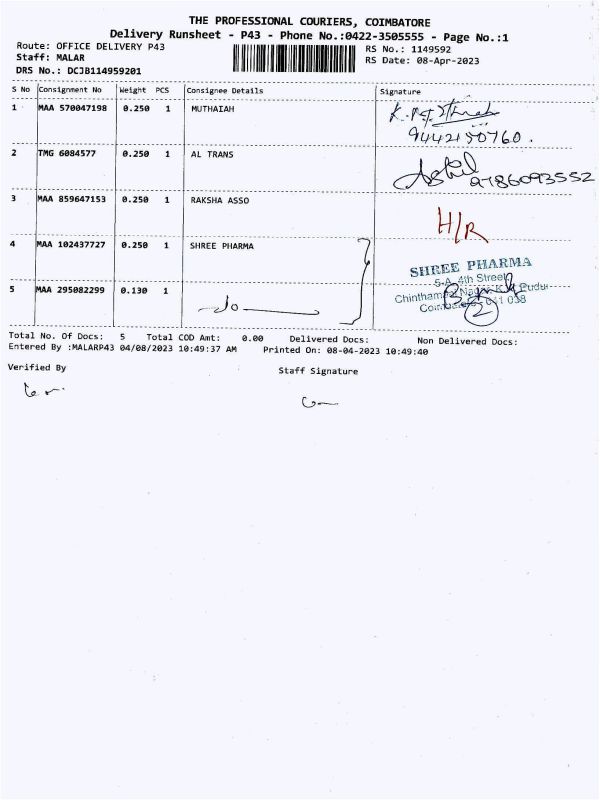 THE PROFESSIONAL COURIERS, COIMBATORE
Delivery Runsheet - P43 - Phone No.:0422-3505555 - Page No.:1
Route: OFFICE DELIVERY P43 RS No.: 1149592
Staff: MALAR RS Date: 08-Apr-2023
DRS No.: DCJB114959201
S No Consignment No Weight PCS Consignee Details Signature
1 MAA 570047198 0.250 1 MUTHAIAH
9442150760.
2 TMG 6084577 0.250 1 AL TRANS
9786093552
3 MAA 859647153 0.250 1 RAKSHA ASSO H/R
4 MAA 102437727 0.250 1 SHREE PHARMA
SHREE PHARMA
5-A, 4th Street
5 MAA 295082299 0.130 1 Do
2
Total No. Of Docs: 5 Total COD Amt: 0.00 Delivered Docs: Non Delivered Docs:
Entered By :MALARP43 04/08/2023 10:49:37 AM Printed On: 08-04-2023 10:49:40
Verified By Staff Signature